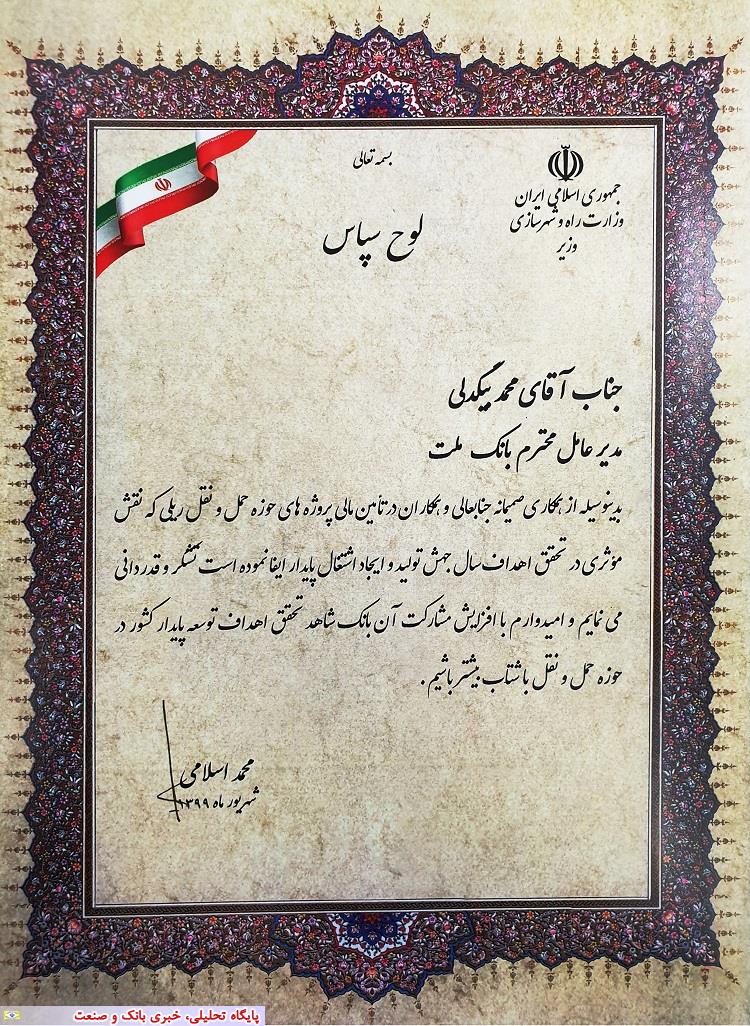 بسمه تعالی
جمهوری اسلامی ایران
وزارت راه و شهرسازی
وزیر
لوح سپاس
جناب آقای محمد بیگدلی
مدیر عامل محترم بانک ملت
بدینوسیله از همکاری صمیمانه جنابعالی و همکاران در تأمین مالی پروژه های حوزه حمل و نقل ریلی که نقش
مؤثری در تحقق اهداف سال جهش تولید و ایجاد اشتغال پایدار ایفا نموده است تشکر و قدردانی
می نمایم و امیدوارم با افزایش مشارکت آن بانک شاهد تحقق اهداف توسعه پایدار کشور در
حوزه حمل و نقل با شتاب بیشتر باشیم.
محمد اسلامی
شهریور ماه ۱۳۹۹
پایگاه تحلیلی، خبری بانک و صنعت